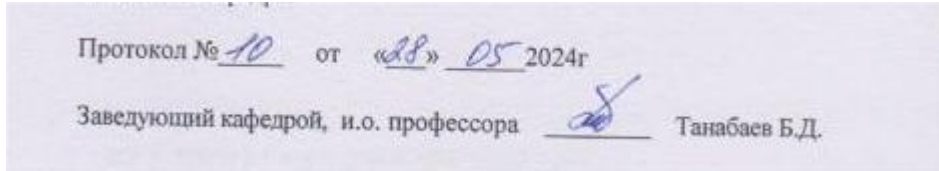 Протокол № 10 от «28» 05 2024г
Заведующий кафедрой, и.о. профессора Танабаев Б.Д.